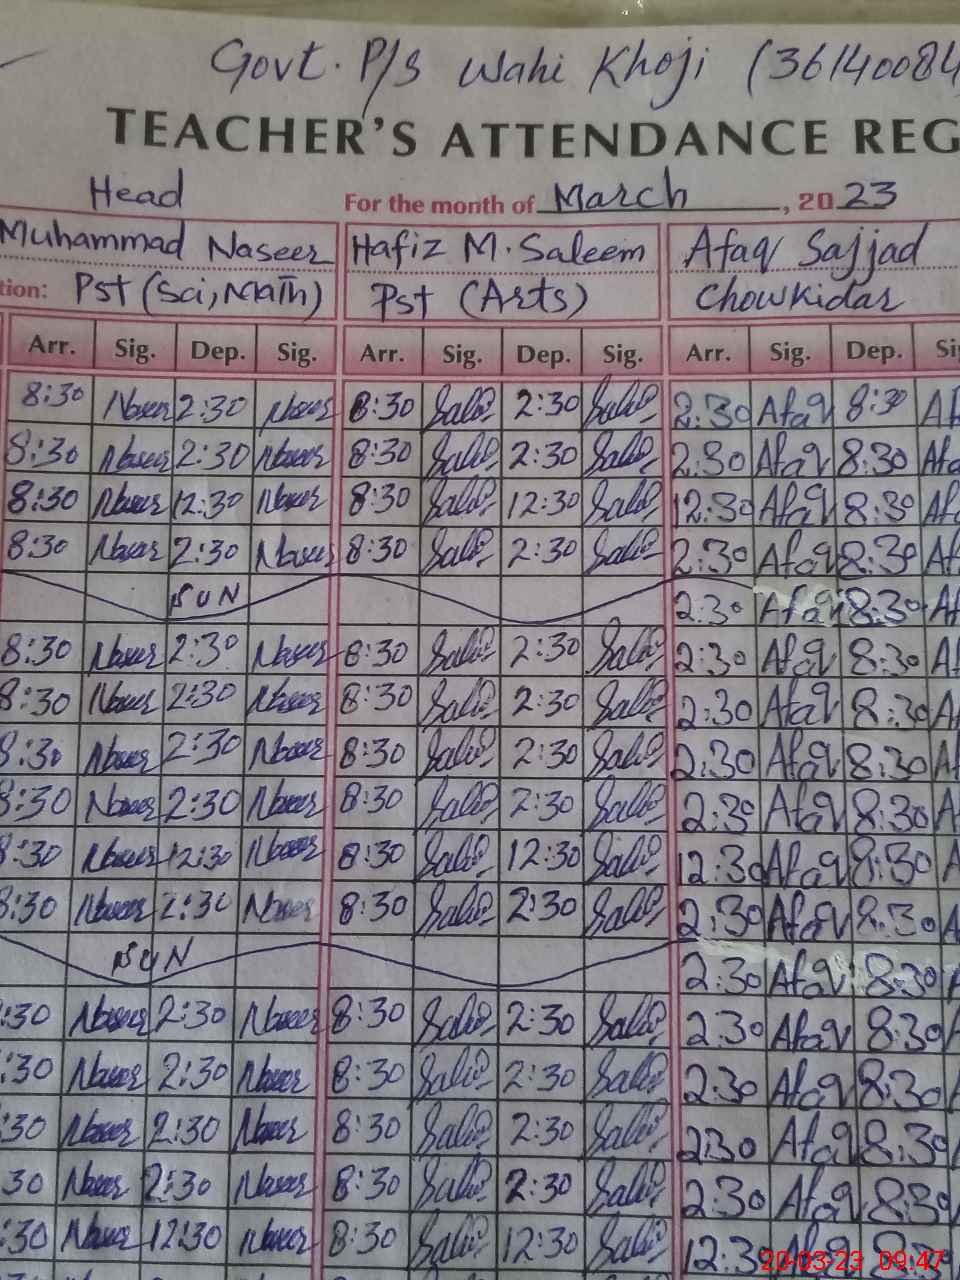 Govt. P/S Wahi Khoji (36140084
TEACHER'S ATTENDANCE REG
Head For the month of March, 2023
Muhammad Naseer Hafiz M. Saleem Afaq Sajjad
tion: Pst (Sci, Math) Pst (Arts) Chowkidar
Arr. Sig. Dep. Sig. Arr. Sig. Dep. Sig. Arr. Sig. Dep. Si
8:30 Naseer 2:30 Naseer 8:30 Salee 2:30 Salee 2:30 Afaq 8:30 Af
8:30 Naseer 2:30 Naseer 8:30 Salee 2:30 Salee 2:30 Afaq 8:30 Afa
8:30 Naseer 12:30 Naseer 8:30 Salee 12:30 Salee 12:30 Afaq 8:30 Af
8:30 Naseer 2:30 Naseer 8:30 Salee 2:30 Salee 2:30 Afaq 8:30 Af
SUN 2:30 Afaq 8:30 Af
8:30 Naseer 2:30 Naseer 8:30 Salee 2:30 Salee 2:30 Afaq 8:30 Af
8:30 Naseer 2:30 Naseer 8:30 Salee 2:30 Salee 2:30 Afaq 8:30 A
8:30 Naseer 2:30 Naseer 8:30 Salee 2:30 Salee 2:30 Afaq 8:30 Af
8:30 Naseer 2:30 Naseer 8:30 Salee 2:30 Salee 2:30 Afaq 8:30 A
8:30 Naseer 12:30 Naseer 8:30 Salee 12:30 Salee 12:30 Afaq 8:30 A
8:30 Naseer 2:30 Naseer 8:30 Salee 2:30 Salee 2:30 Afaq 8:30 A
SUN 2:30 Afaq 8:30 A
:30 Naseer 2:30 Naseer 8:30 Salee 2:30 Salee 2:30 Afaq 8:30
:30 Naseer 2:30 Naseer 8:30 Salee 2:30 Salee 2:30 Afaq 8:30
30 Naseer 2:30 Naseer 8:30 Salee 2:30 Salee 2:30 Afaq 8:30
30 Naseer 2:30 Naseer 8:30 Salee 2:30 Salee 2:30 Afaq 8:30
:30 Naseer 12:30 Naseer 8:30 Salee 12:30 Salee 12:30 Afaq 8:30
20-03-23 09:47